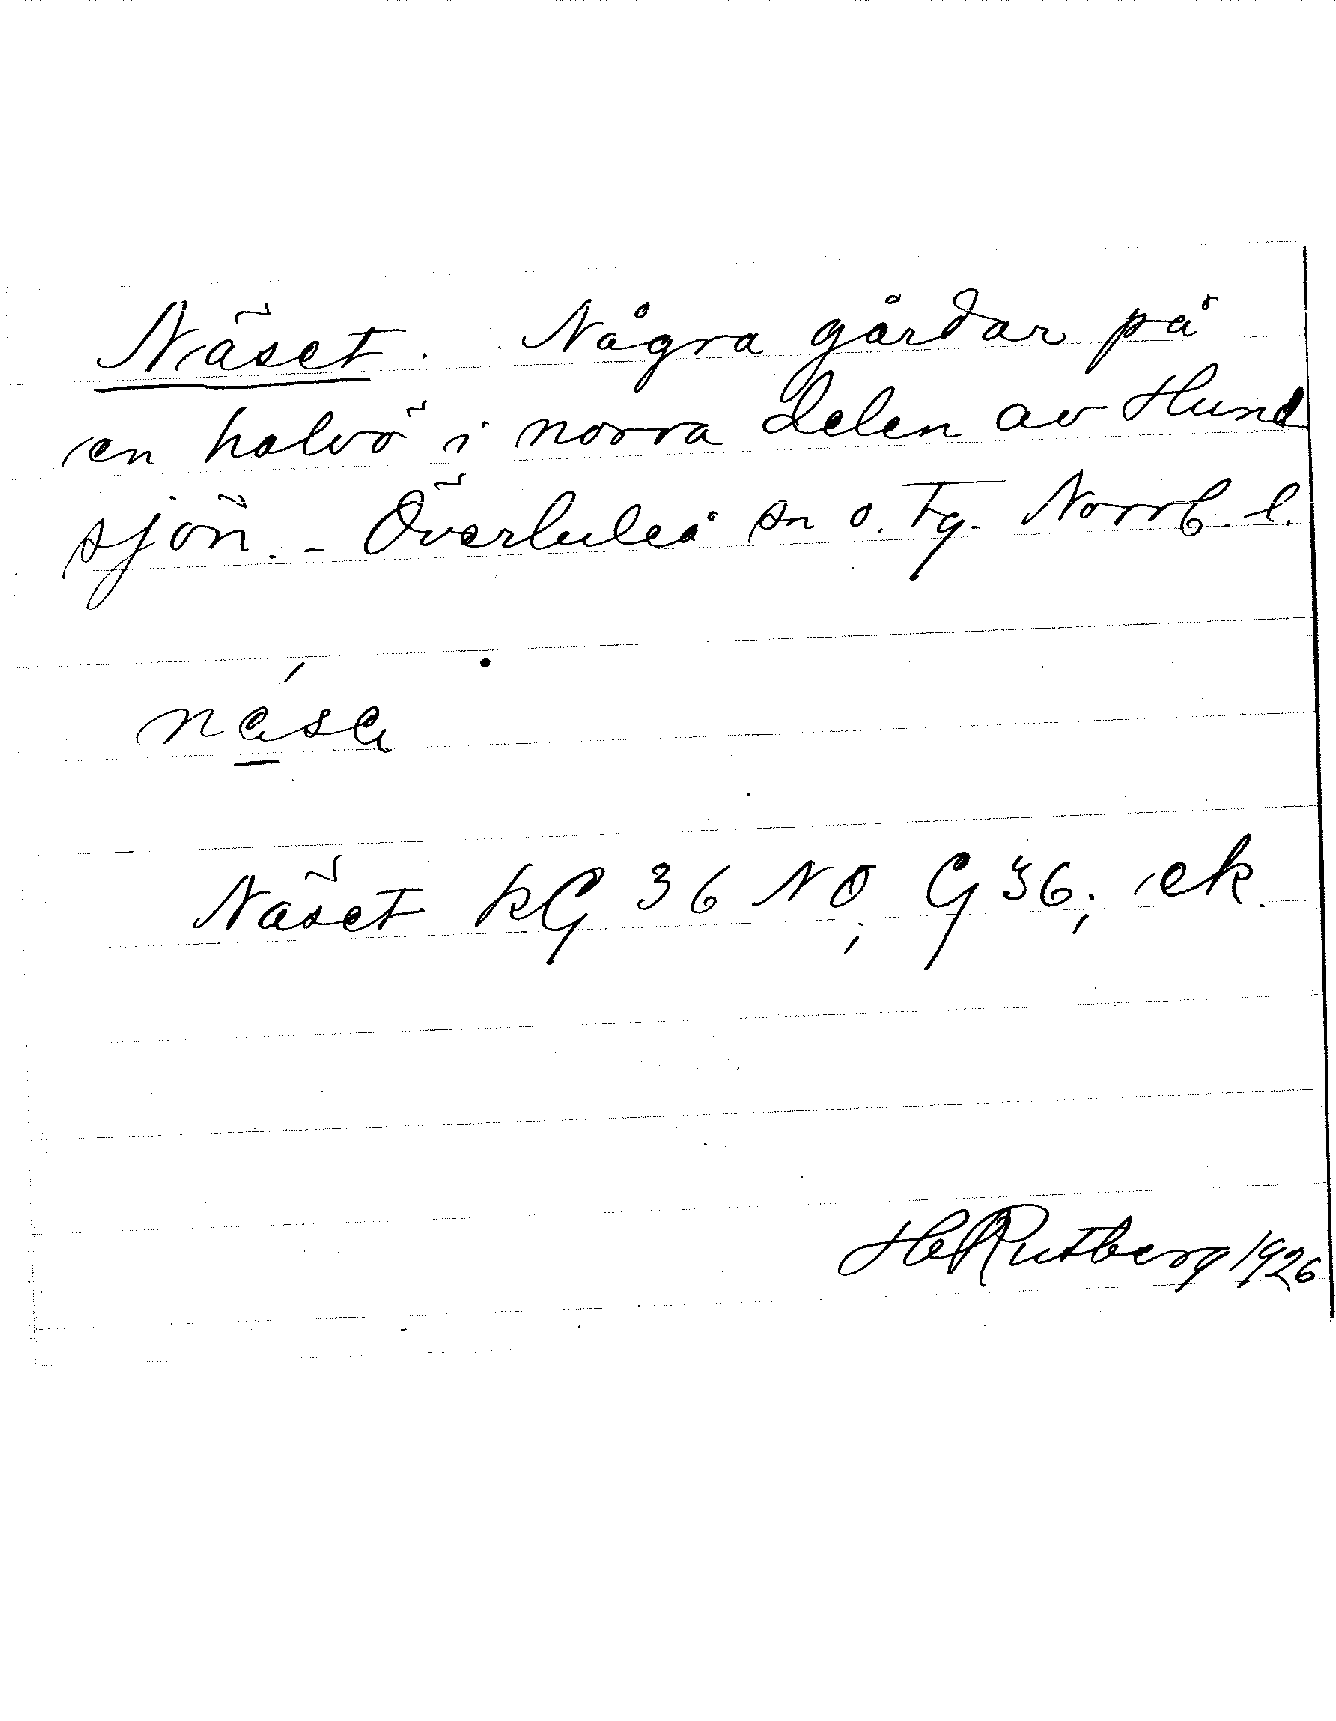 Näset. Några gårdar på
en halvö i norra delen av Hund
sjön. - Överluleå sn o. tg. Norrb. l.
Näset kG 36 NO, G 36; ek.
H Rutberg 1926